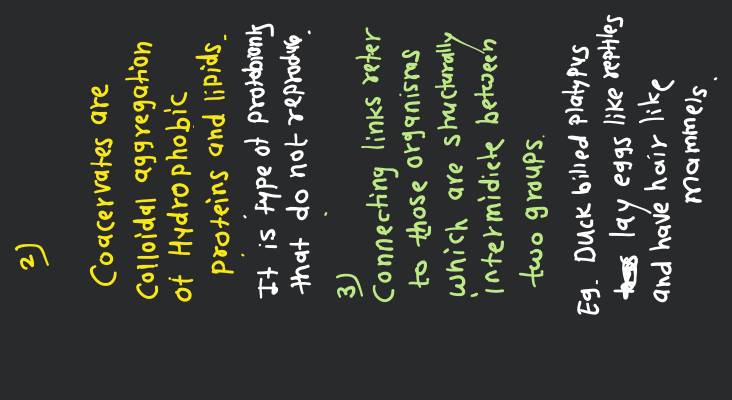 2)
Coacervates are
Colloidal aggregation
of Hydrophobic
proteins and lipids.
It is type of protobionts
that do not reproduce.
3)
Connecting links refer
to those organisms
which are structurally
intermidiete between
two groups.
Eg. Duck billed platypus
lay eggs like reptiles
and have hair like
mammels.